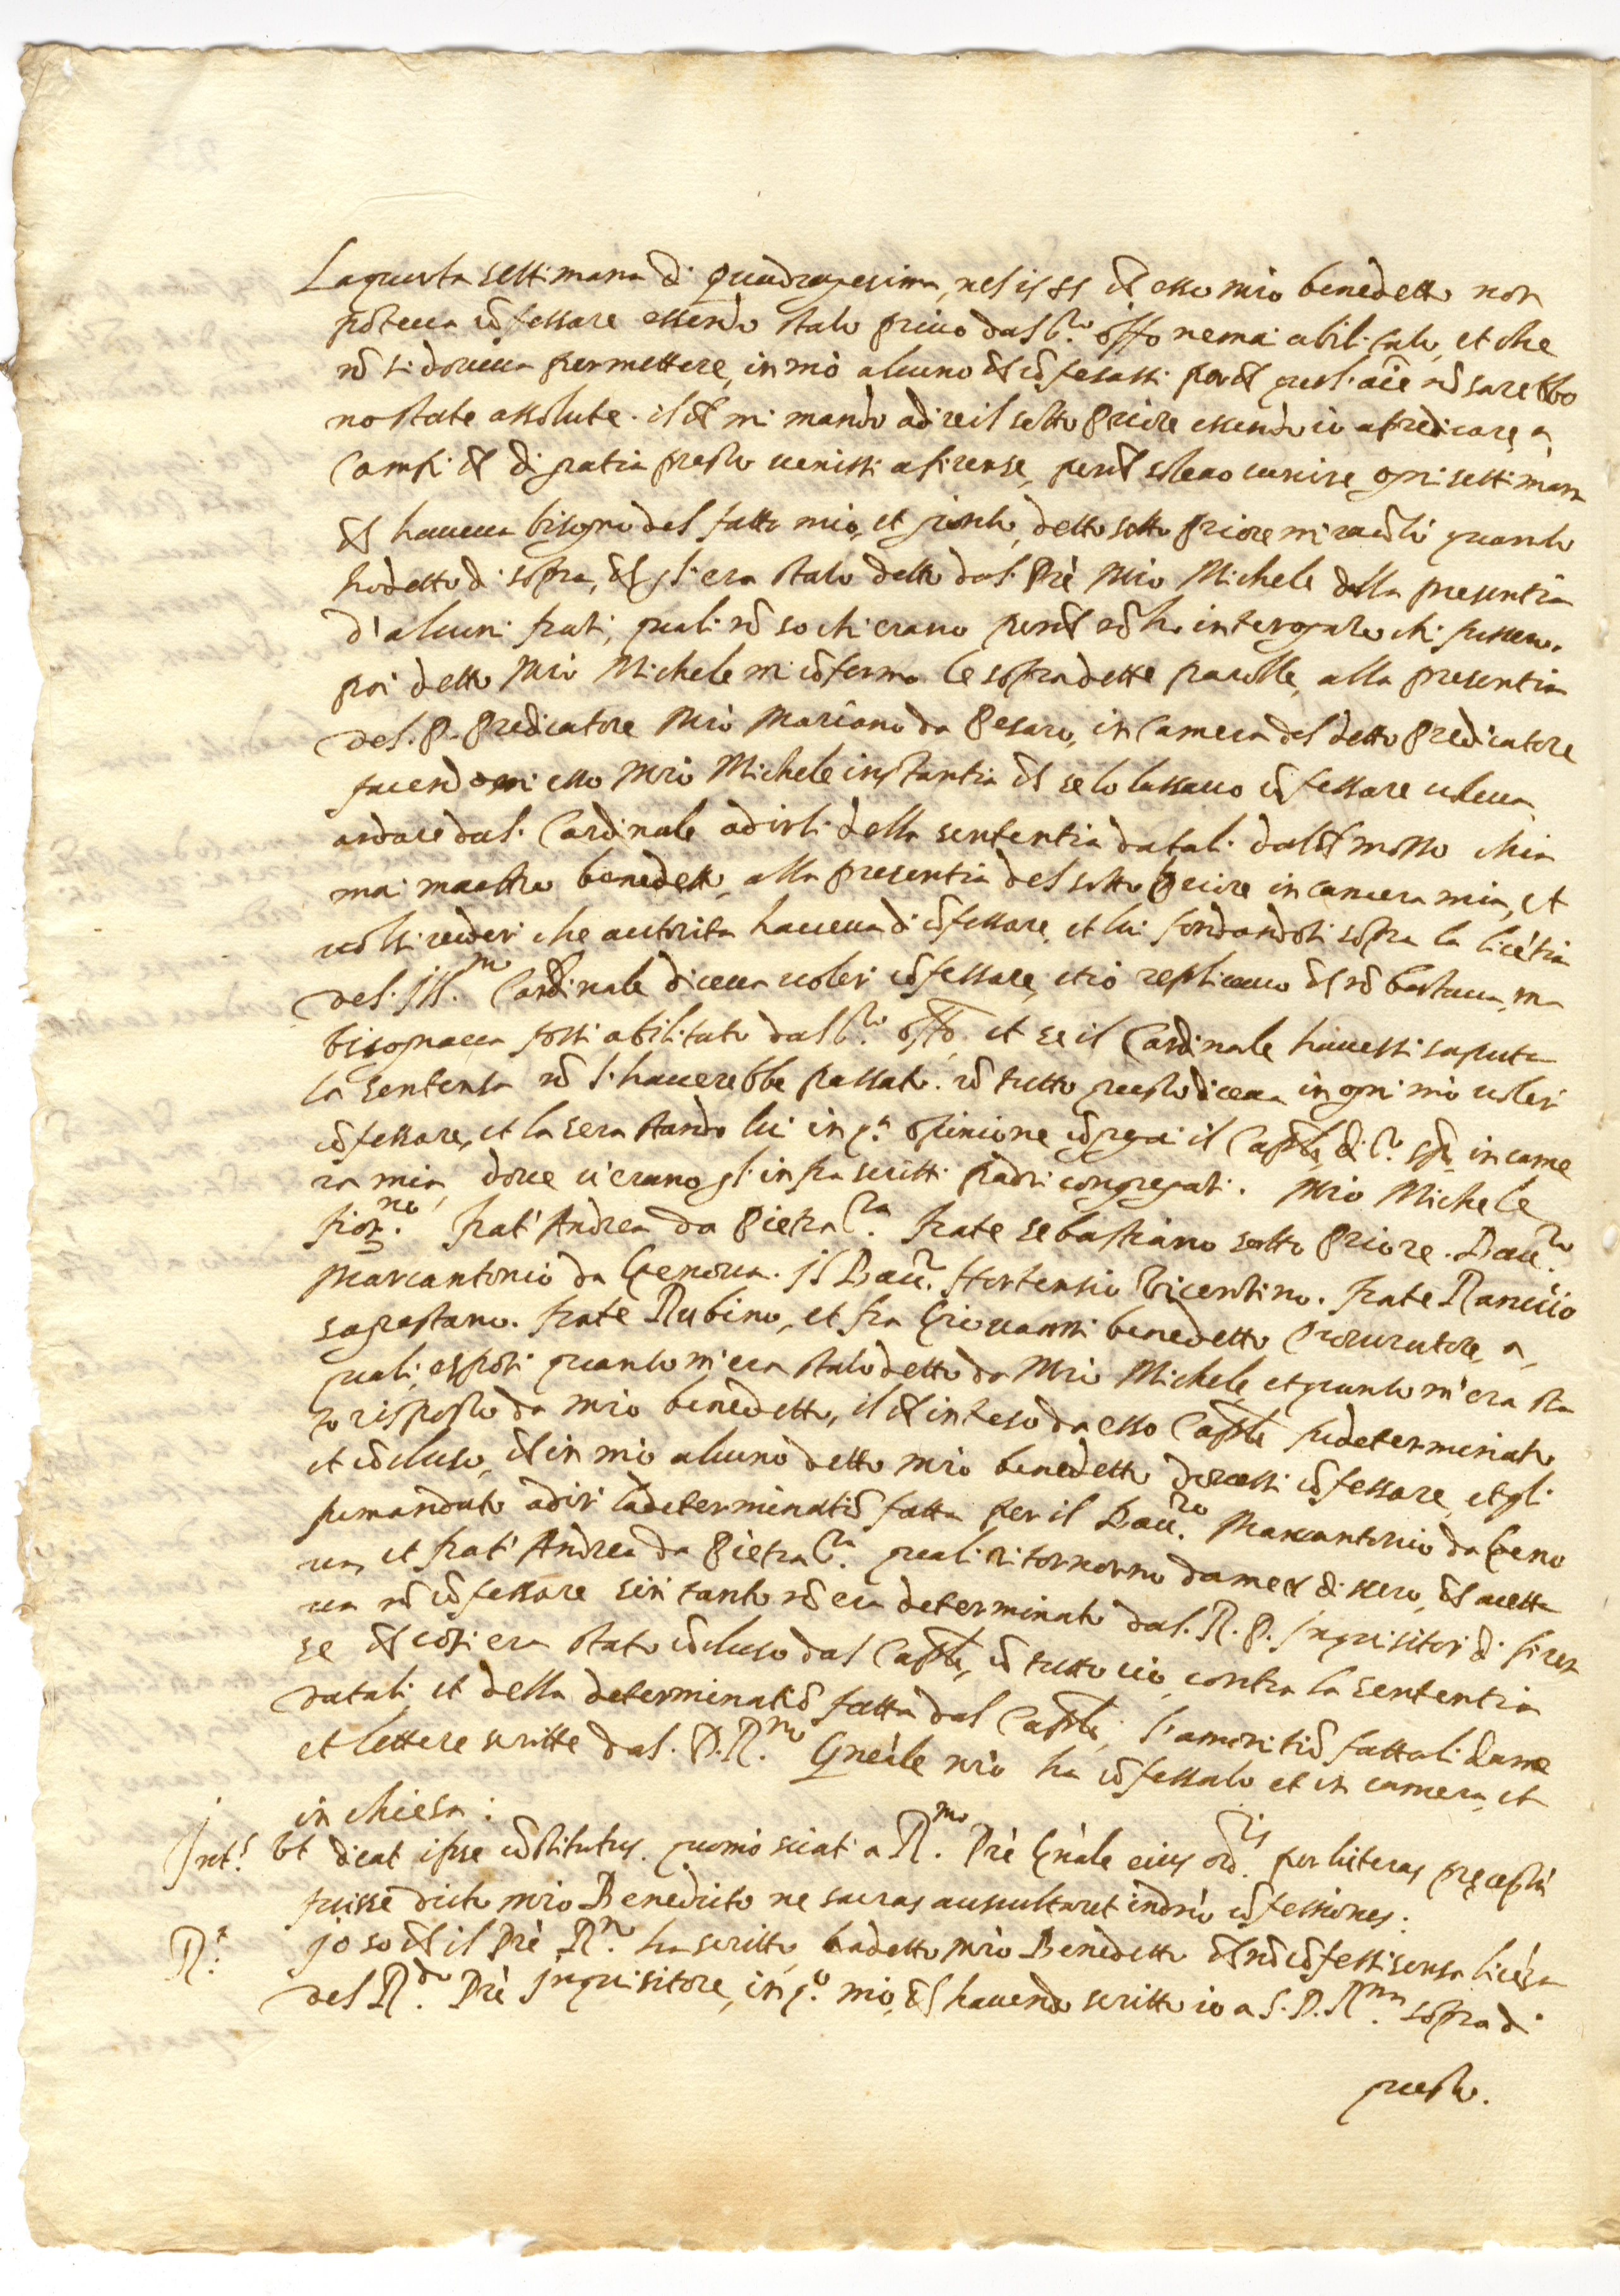 La quarta settimana di quadragesima, nel 1581 ch̃ esso mr̃o benedetto non
poteua cõfessare essendo stato priuo dal S.to offo ne mai abilitato, et che
nõ si doueua permettere, in mõ alcuno ch̃ cõfesassi perch̃ quel'aĩe nõ sarebbo
no state assolute. il ch̃ mi mandò a dire il sotto Priore essendo io a predicare a
Campi ch̃ di gratia presto uenissi a firense, perch̃ soleuo uenire ogni settimana
ch̃ haueua bisogno del fatto mio, et gionto, detto sotto Priore mi racõtò quanto
ho detto di sopra, ch̃ gl'era stato detto dal Prẽ Mr̃o Michele alla presentia
d'alcuni frati, quali nõ so chi erano perch̃ nõ ho interogato chi fussero.
poi detto Mr̃o Michele mi cõfermò le sopradette parolle, alla presentia
del. P. Predicatore Mr̃o Mariano da Pesaro, in Camera del detto Predicatore
facendomi esso Mr̃o Michele instantia ch̃ se lo lassauo cõfessare uoleua
andare dal. Cardinale a dirli della sententia datali. dalch̃ mosso chia
mai maestro benedetto, alla presentia del sotto Priore in camera mia, et
uolsi ueder che autorita haueua di cõfessare, et lui fondandosi sopra la licẽtia
del. Ill.mo Cardinale diceua uoler cõfessare, et io replicauo ch̃ nõ bastaua, ma
bisognaua fossi abilitato dal S.to offõ et se il Cardinale hauessi saputa
la sentensa nõ l'hauerebbe passato. cõ tutto questo diceua in ogni mõ uoler
cõfessare, et la sera stando lui in q.a opinione cõgregai il Caplõ di S.to Spõ in came
ra mia, doue u'erano gl'infra scritti padri congregati. Mr̃o Michele
fior.no frat'Andrea da Pietra S.ta frate sebastiano sotto Priore. Bacc.ro
Marcantonio da Genoua. Il Bacc.r Hortensio Vicentino. frate Ranucio
sagrestano. frate Rubino, et fra Giouanni benedetto Procuratore, a
quali esposi quanto m'era stato detto da Mr̃o Michele et quanto m'era sta
to risposto da mr̃o benedetto, il ch̃ inteso da esso Caplõ fu determinato
et cõcluso, ch̃ in mõ alcuno detto mr̃o benedetto douessi cõfessare, et gli
fu mandato a dir la determinatiõ fatta per il Bacc.ro Marcantonio da Geno
ua, et frat'Andrea da Pietra S.ta quali ritornorno da me et dissero, ch̃ acetta
ua nõ cõfessare sin tanto nõ era determinato dal. R. P. Inquisitor di firen
se ch̃ cosi era stato cõcluso dal Caplõ, cõ tutto ciò contra la sententia
datali et della determinatiõ fatta dal Caplõ, l'amonitiõ fattali da me
et lettere scritte dal. P. R.mo Gnẽale nr̃o ha cõfessato et in camera, et
in chiesa:
Int.s Vt dicat ipse cõstitutus. quomõ sciat a R.mo Prẽ Gnãle eius ord.is per literas pręceptũ
fuisse dicto mr̃o Benedicto ne sacras auscultaret indr̃io cõfessiones.
R.t Io so ch̃ il Prẽ R.mo ha scritto, a detto mr̃o Benedetto ch̃ nõ cõfessi sensa licẽza
del R.do Prẽ Inquisitore, in q.o mõ, ch̃ hauendo scritto io a S. P. R.ma sopra di
questo.